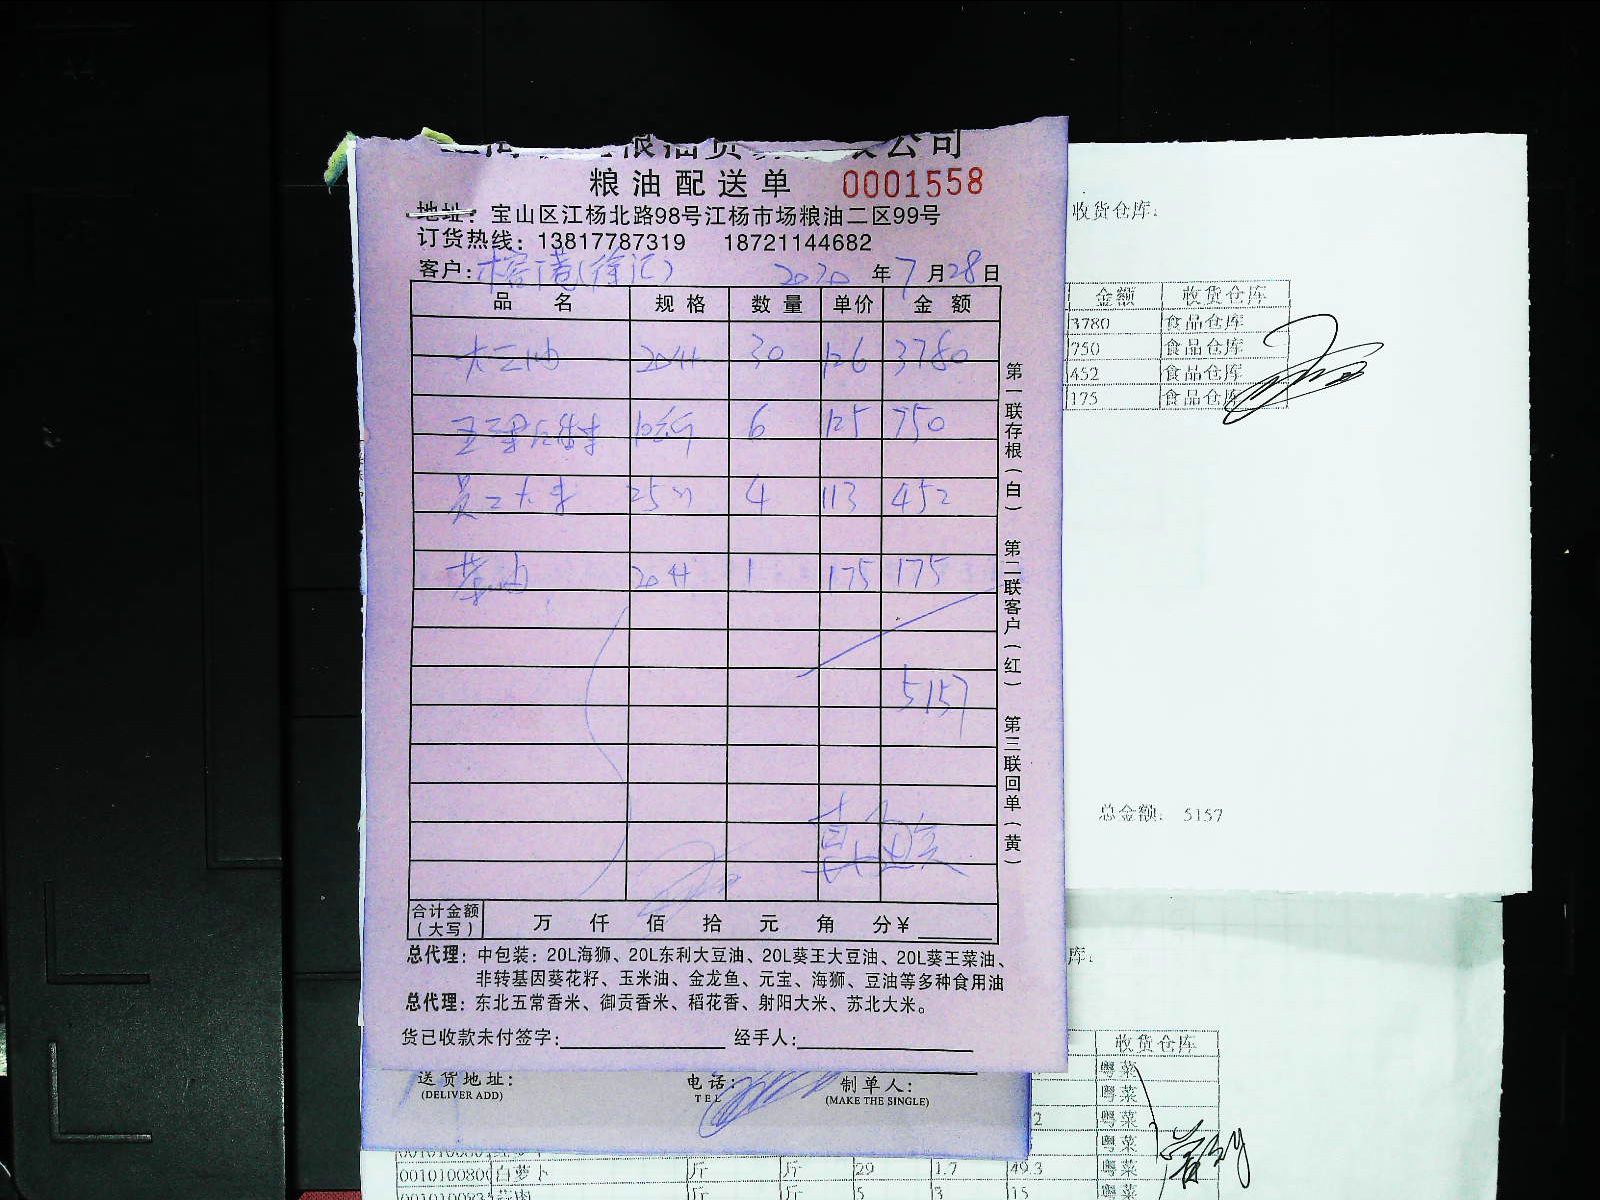 公司
粮油配送单 0001558
地址：宝山区江杨北路98号江杨市场粮油二区99号
订货热线：13817787319 18721144682
客户：榕港(徐汇) 2020年7月28日
品名 规格 数量 单价 金额
大豆油 20升 30 126 3780
6 125 750
员工大米 25 4 113 452
菜油 20升 1 175 175
5157
合计金额(大写) 万 仟 佰 拾 元 角 分¥
总代理：中包装：20L海狮、20L东利大豆油、20L葵王大豆油、20L葵王菜油、
非转基因葵花籽、玉米油、金龙鱼、元宝、海狮、豆油等多种食用油
总代理：东北五常香米、御贡香米、稻花香、射阳大米、苏北大米。
货已收款未付签字： 经手人：
第一联存根(白) 第二联客户(红) 第三联回单(黄)
送货地址： 电话： 制单人：
(DELIVER ADD) TEL (MAKE THE SINGLE)
收货仓库：
金额 收货仓库
3780 食品仓库
750 食品仓库
452 食品仓库
175 食品仓库
总金额： 5157
库：
收货仓库
粤菜
粤菜
2 粤菜
粤菜
白萝卜 斤 斤 29 1.7 49.3 粤菜
斤 斤 5 3 15 粤菜